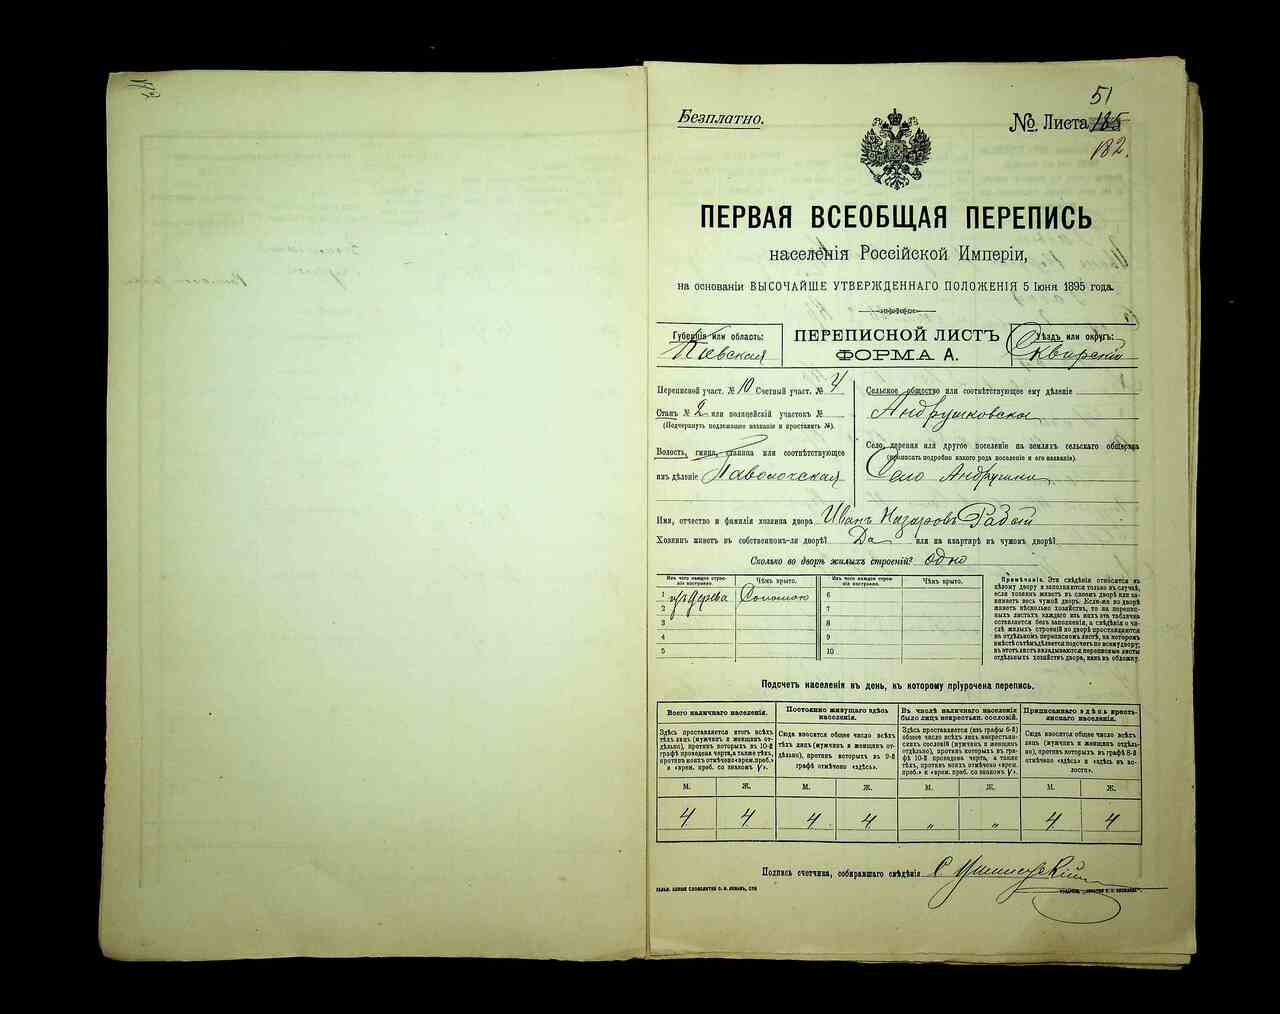 51
Безплатно.
№ Листа 185
182.
ПЕРВАЯ ВСЕОБЩАЯ ПЕРЕПИСЬ
населенія Россійской Имперіи,
на основаніи ВЫСОЧАЙШЕ УТВЕРЖДЕННАГО ПОЛОЖЕНІЯ 5 Іюня 1895 года.
Губернія или область:
Кіевская
ПЕРЕПИСНОЙ ЛИСТЪ
ФОРМА А.
Уѣздъ или округъ:
Сквирскій
Переписной участ. № 10 Счетный участ. № 4
Станъ № 2 или полицейскій участокъ №
(Подчеркнуть подлежащее названіе и проставить №).
Волость, гмина, станица или соотвѣтствующее
имъ дѣленіе Паволочская
Сельское общество или соотвѣтствующее ему дѣленіе
Андрушковское
Село, деревня или другое поселеніе на земляхъ сельскаго общества
(прописать подробно какого рода поселеніе и его названіе).
Село Андрушки
Имя, отчество и фамилія хозяина двора Иванъ Назаровъ
Хозяинъ живетъ въ собственном-ли дворѣ? Да или на квартирѣ въ чужомъ дворѣ?
Сколько во дворѣ жилыхъ строеній? одно
Изъ чего каждое строеніе построено.
Чѣмъ крыто.
Изъ чего каждое строеніе построено.
Чѣмъ крыто.
1 изъ дерева Соломою 6
2 7
3 8
4 9
5 10
Примѣчаніе. Эти свѣдѣнія относятся къ
цѣлому двору и заполняются только въ случаѣ,
если хозяинъ живетъ въ своемъ дворѣ или занимаетъ
весь чужой дворъ. Если-же во дворѣ
живетъ нѣсколько хозяйствъ, то на переписныхъ
листахъ каждаго изъ нихъ эта табличка
оставляется безъ заполненія, а свѣдѣнія о числѣ
жилыхъ строеній во дворѣ проставляются
на отдѣльномъ переписномъ листѣ, на которомъ
вмѣстѣ съ тѣмъ дѣлается подсчетъ по всему двору;
въ этотъ листъ вкладываются переписные листы
отдѣльныхъ хозяйствъ двора, какъ въ обложку.
Подсчетъ населенія въ день, къ которому пріурочена перепись.
Всего наличнаго населенія.
Здѣсь проставляется итогъ всѣхъ
тѣхъ лицъ (мужчинъ и женщинъ отдѣльно),
противъ которыхъ въ 10-й
графѣ проведена черта, а также тѣхъ,
противъ коихъ отмѣчено «врем. преб.»
и «врем. преб. со знакомъ V».
Постоянно живущаго здѣсь
населенія.
Сюда вносится общее число всѣхъ
тѣхъ лицъ (мужчинъ и женщинъ отдѣльно),
противъ которыхъ въ 9-й
графѣ отмѣчено «здѣсь».
Въ числѣ наличнаго населенія
было лицъ некрестьян. сословій.
Здѣсь проставляется (изъ графы 6-й)
общее число всѣхъ лицъ некрестьянскихъ
сословій (мужчинъ и женщинъ
отдѣльно), противъ которыхъ въ графѣ
10-й проведена черта, а также
тѣхъ, противъ коихъ отмѣчено «врем.
преб.» и «врем. преб. со знакомъ V».
Приписаннаго здѣсь крестьянскаго
населенія.
Сюда вносится общее число всѣхъ
лицъ (мужчинъ и женщинъ отдѣльно),
противъ которыхъ въ графѣ 8-й
отмѣчено «здѣсь» и «здѣсь въ волости».
М. Ж. М. Ж. М. Ж. М. Ж.
4 4 4 4 „ „ 4 4
Подпись счетчика, собиравшаго свѣдѣнія